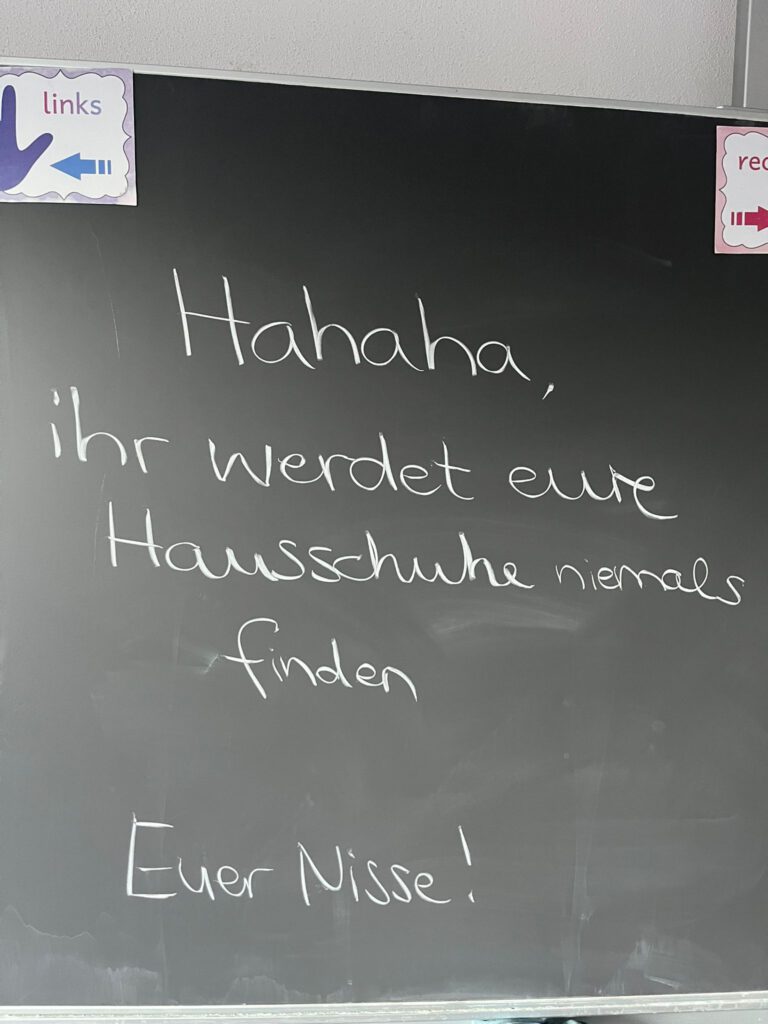 links
rec
Hahaha,
ihr werdet eure
Hausschuhe niemals
finden
Euer Nisse!